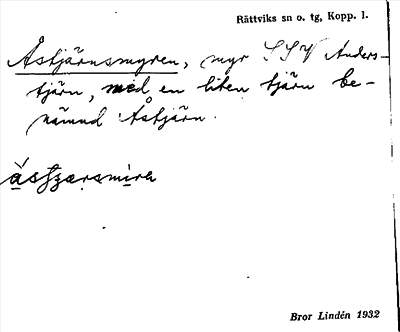 Rättviks sn o. tg, Kopp. l.
Åstjärnsmyren, myr SSV Anders-
tjärn, med en liten tjärn be-
nämnd Åstjärn.
Bror Lindén 1932